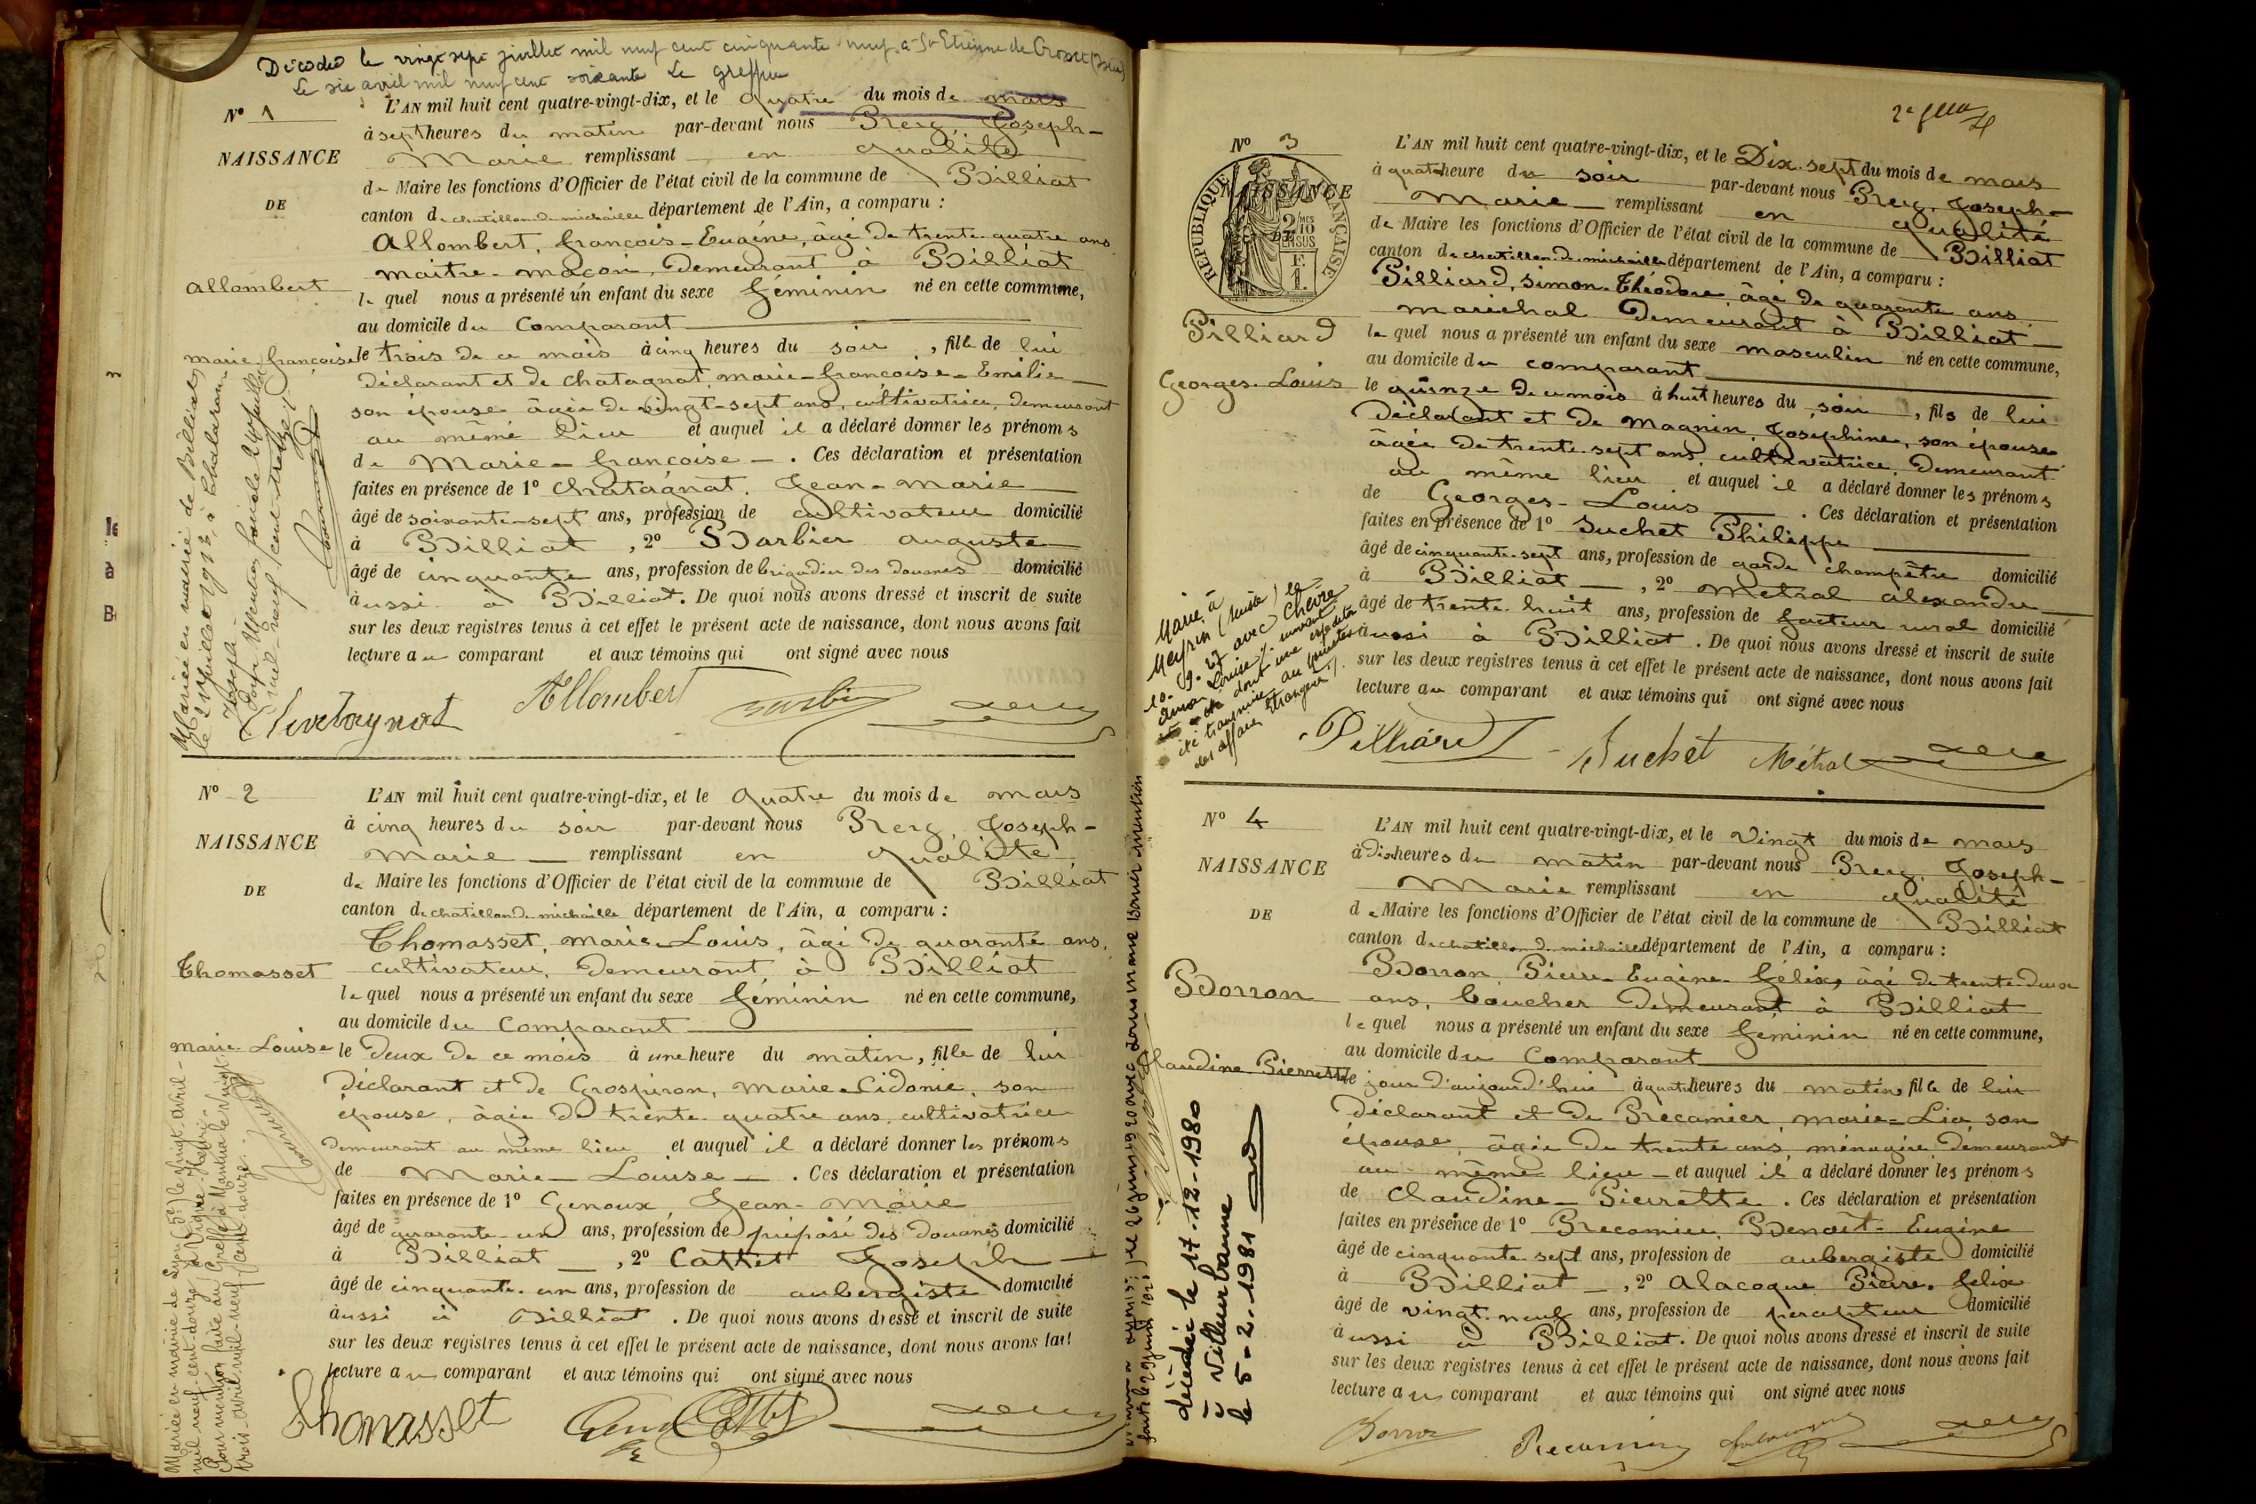 Décédée le vingt sept juillet mil neuf cent cinquante neuf à St Etienne de Crosset (Isère)
Le six avril mil neuf cent soixante Le greffier
N° 1
NAISSANCE
DE
Allombert
Marie Françoise
L'AN mil huit cent quatre-vingt-dix, et le quatre du mois de mars
à sept heures du matin par-devant nous Prerg, Joseph-
Marie remplissant en qualité
de Maire les fonctions d'Officier de l'état civil de la commune de Billiat
canton de chatillon de michaille département de l'Ain, a comparu :
Allombert, François-Eugène, âgé de trente quatre ans
maître-maçon, demeurant à Billiat
lequel nous a présenté un enfant du sexe féminin né en cette commune,
au domicile du comparant
le trois de ce mois à cinq heures du soir, fille de lui
déclarant et de Chatagnat, marie-françoise-Emélie
son épouse âgée de vingt-sept ans, cultivatrice, demeurant
au même lieu et auquel il a déclaré donner les prénoms
de Marie-Françoise. Ces déclaration et présentation
faites en présence de 1° Chatagnat, Jean-Marie
âgé de soixante-sept ans, profession de cultivateur domicilié
à Billiat, 2° Barbier auguste
âgé de cinquante ans, profession de brigadier des douanes domicilié
aussi à Billiat. De quoi nous avons dressé et inscrit de suite
sur les deux registres tenus à cet effet le présent acte de naissance, dont nous avons fait
lecture au comparant et aux témoins qui ont signé avec nous
Mariée en mairie de Billiat,
le 24 juillet 1913, à Chalaron
Joseph
Pour Mention faite le 24 juillet
mil-neuf-cent-treize
Allombert
N° 2
NAISSANCE
DE
Thomasset
Marie Louise
L'AN mil huit cent quatre-vingt-dix, et le quatre du mois de mars
à cinq heures du soir par-devant nous Prerg, Joseph-
Marie remplissant en qualité
de Maire les fonctions d'Officier de l'état civil de la commune de Billiat
canton de chatillon de michaille département de l'Ain, a comparu :
Thomasset, marie-Louis, âgé de quarante ans,
cultivateur, demeurant à Billiat
lequel nous a présenté un enfant du sexe féminin né en cette commune,
au domicile du comparant
le deux de ce mois à une heure du matin, fille de lui
déclarant et de Grospiron, Marie-Sidonie, son
épouse, âgée de trente quatre ans, cultivatrice
demeurant au même lieu et auquel il a déclaré donner les prénoms
de Marie-Louise. Ces déclaration et présentation
faites en présence de 1° Genoux Jean-Marie
âgé de quarante-un ans, profession de préposé des douanes domicilié
à Billiat, 2° Cattet Joseph
âgé de cinquante-un ans, profession de aubergiste domicilié
aussi à Billiat. De quoi nous avons dressé et inscrit de suite
sur les deux registres tenus à cet effet le présent acte de naissance, dont nous avons fait
lecture au comparant et aux témoins qui ont signé avec nous
Mariée en mairie de Lyon (5e) le vingt-avril-
mil-neuf-cent-douze à Vogne Henri
Pour mention faite au Greffe à Nantua le vingt-
trois-avril-mil-neuf-cent-douze.
Thomasset
2e feuillet
N° 3
NAISSANCE
DE
REPUBLIQUE FRANÇAISE
2/10 EN SUS
F. 1.
Pilliard
Georges-Louis
L'AN mil huit cent quatre-vingt-dix, et le Dix-sept du mois de mars
à quatre heure du soir par-devant nous Prerg, Joseph-
Marie remplissant en qualité
de Maire les fonctions d'Officier de l'état civil de la commune de Billiat
canton de chatillon de michaille département de l'Ain, a comparu :
Pilliard, Simon-Théodore, âgé de quarante ans
maréchal demeurant à Billiat
lequel nous a présenté un enfant du sexe masculin né en cette commune,
au domicile du comparant
le quinze de ce mois à huit heures du soir, fils de lui
déclarant et de Magnin, Joséphine, son épouse
âgée de trente-sept ans, cultivatrice, demeurant
au même lieu et auquel il a déclaré donner les prénoms
de Georges-Louis. Ces déclaration et présentation
faites en présence de 1° Suchet Philippe
âgé de cinquante-sept ans, profession de garde champêtre domicilié
à Billiat, 2° Métral alexandre
âgé de trente-huit ans, profession de facteur rural domicilié
aussi à Billiat. De quoi nous avons dressé et inscrit de suite
sur les deux registres tenus à cet effet le présent acte de naissance, dont nous avons fait
lecture au comparant et aux témoins qui ont signé avec nous
Marié à
Meyrin (Suisse) le
10.9.27 avec Chevre
Louise suivant
acte dont une expédition
été transmise au ministre
des affaires étrangères
Pilliard Suchet Métral
N° 4
NAISSANCE
DE
Borron
Claudine Pierrette
L'AN mil huit cent quatre-vingt-dix, et le Vingt du mois de mars
à dix heures du matin par-devant nous Prerg, Joseph-
Marie remplissant en qualité
de Maire les fonctions d'Officier de l'état civil de la commune de Billiat
canton de chatillon de michaille département de l'Ain, a comparu :
Borron Pierre-Eugène-Félix, âgé de trente-deux
ans, boucher demeurant à Billiat
lequel nous a présenté un enfant du sexe féminin né en cette commune,
au domicile du comparant
le jour d'aujourd'hui à quatre heures du matin fille de lui
déclarant et de Precamier, marie-Lia son
épouse, âgée de trente ans, ménagère, demeurant
au même lieu et auquel il a déclaré donner les prénoms
de Claudine-Pierrette. Ces déclaration et présentation
faites en présence de 1° Precamier, Benoit-Eugène
âgé de cinquante-sept ans, profession de aubergiste domicilié
à Billiat, 2° Alacoque Pierre-Felix
âgé de vingt-neuf ans, profession de percepteur domicilié
aussi à Billiat. De quoi nous avons dressé et inscrit de suite
sur les deux registres tenus à cet effet le présent acte de naissance, dont nous avons fait
lecture au comparant et aux témoins qui ont signé avec nous
décédée le 17-12-1980
à Villeurbanne
le 5-2-1981
Borron Precamier